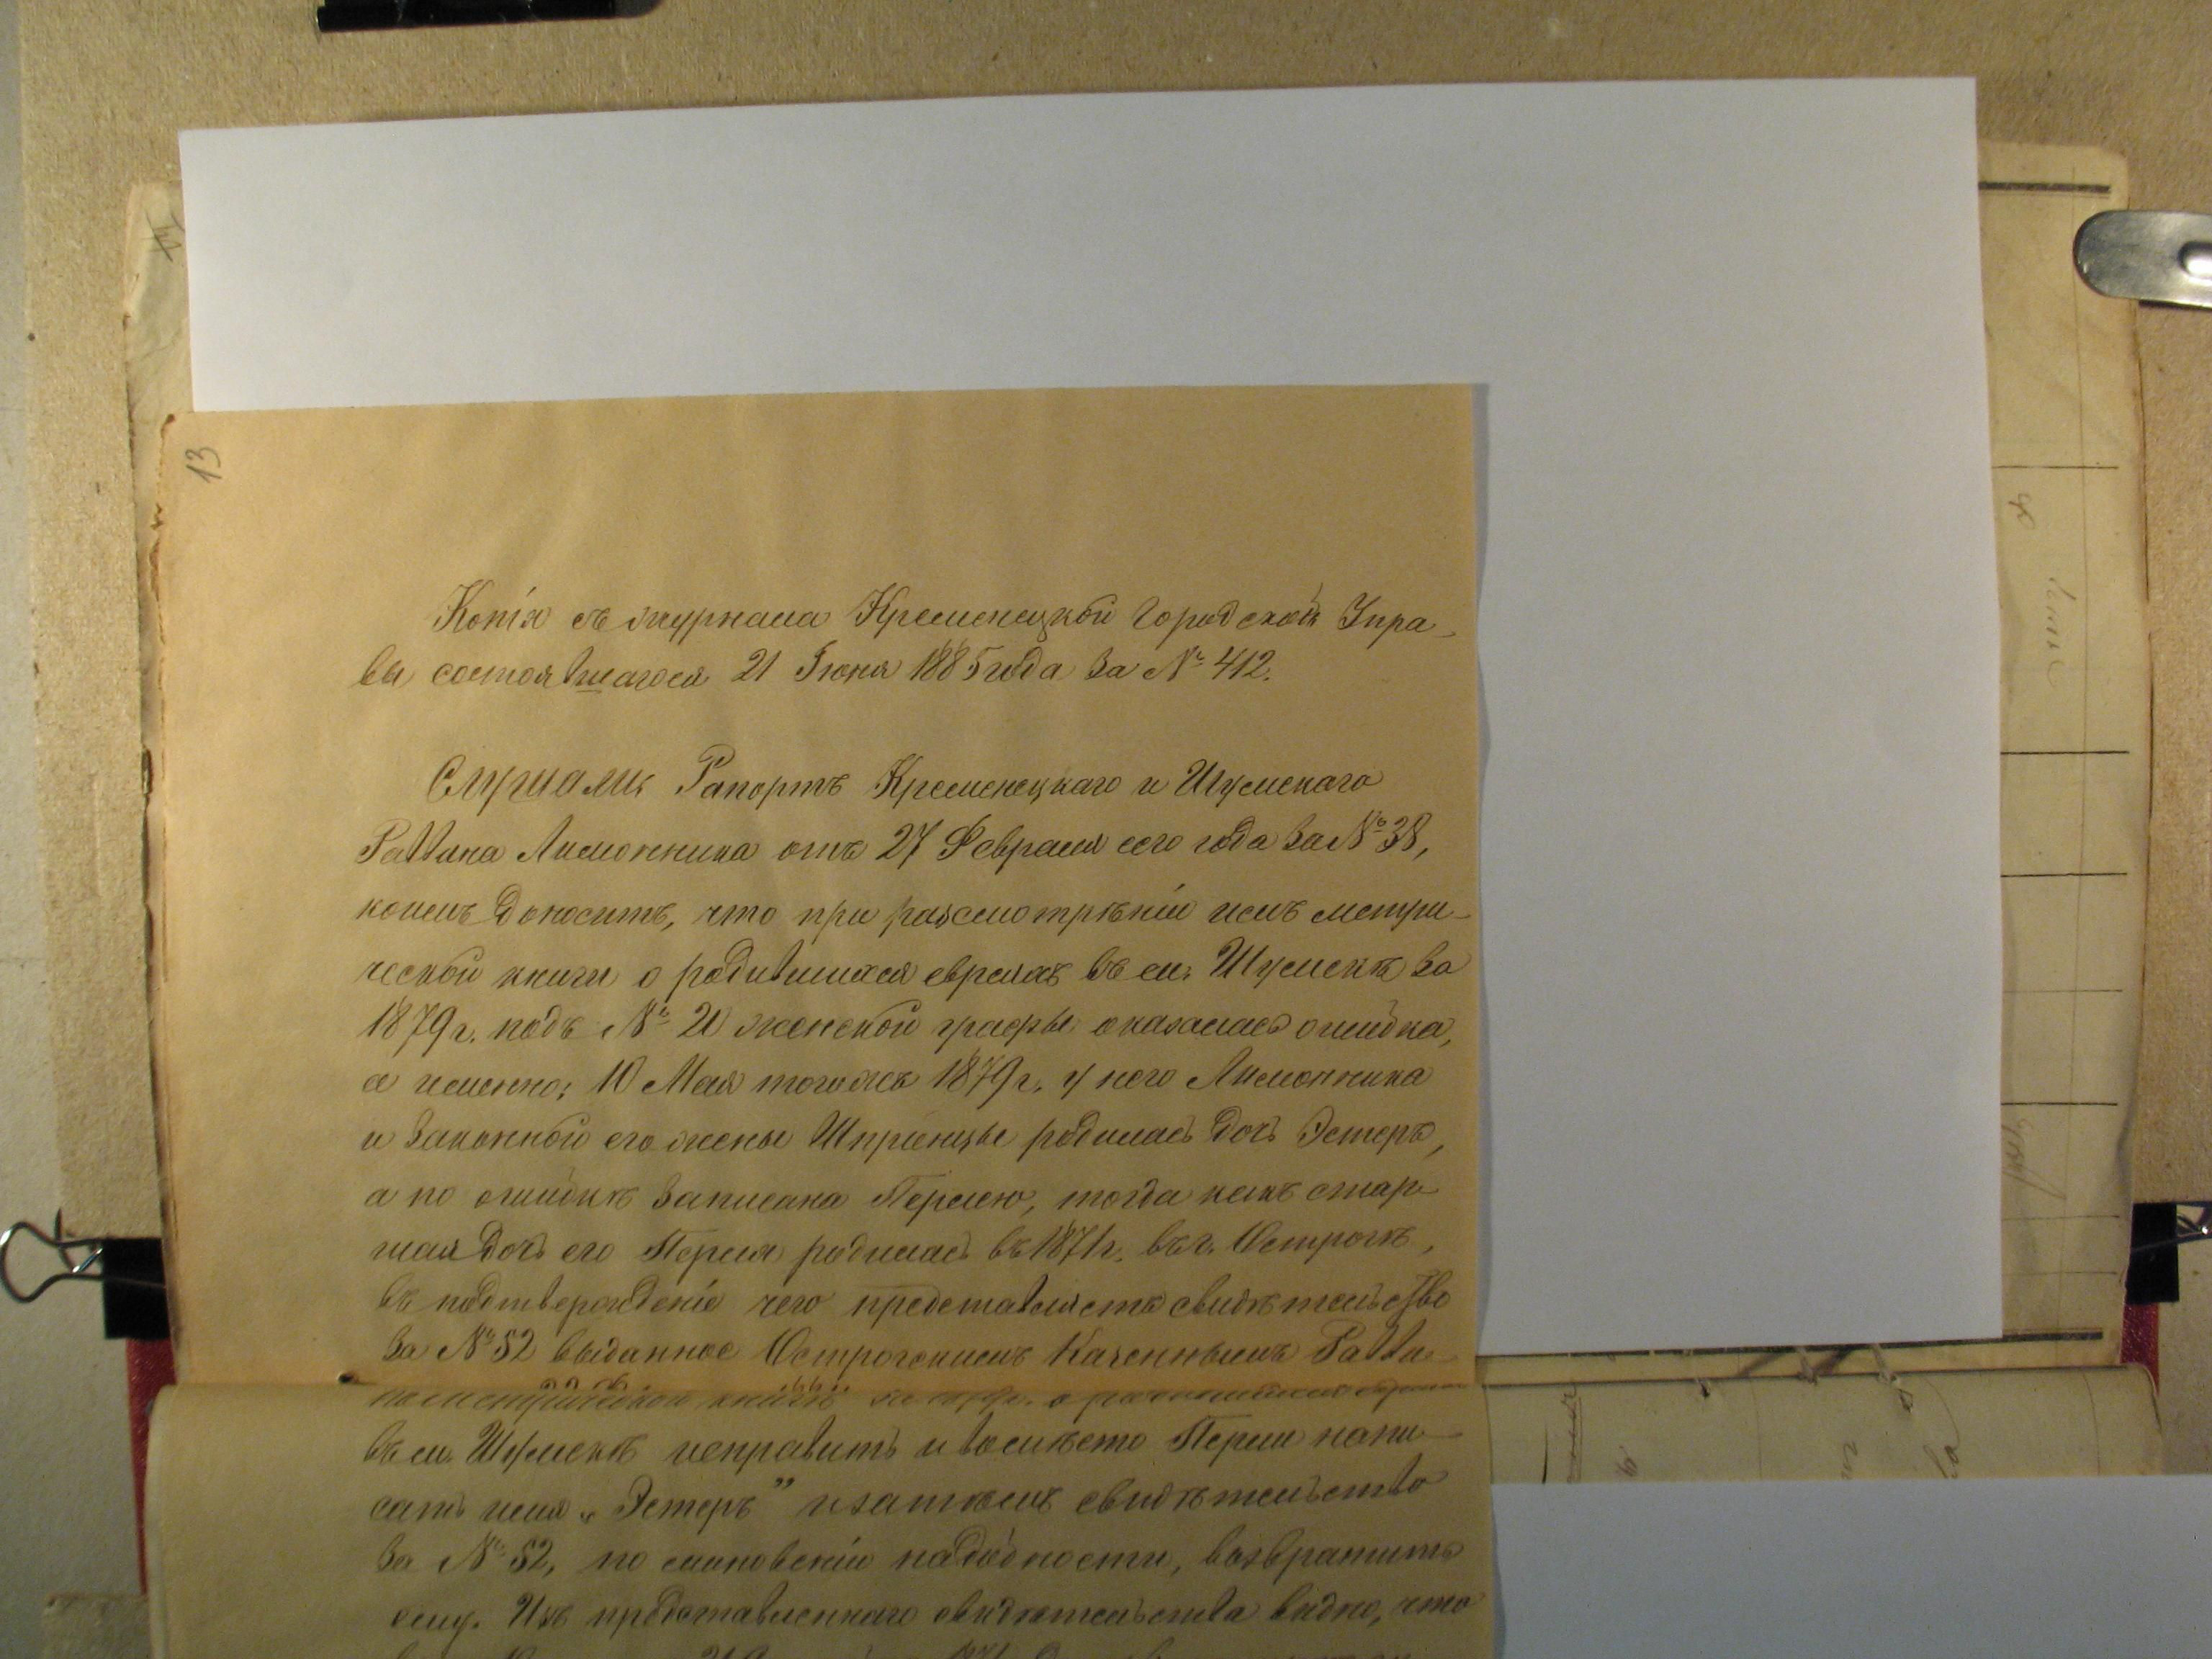 13
Копія съ журнала Кременецкой Городской Упра-
вы состоявшагося 21 Іюня 1885 года за № 412.
Слушали Рапортъ Кременецкаго и Шумскаго
Раввина Лимонника отъ 27 Февраля сего года за № 38,
коимъ доноситъ, что при разсмотрѣніи имъ метри-
ческой книги о родившихся евреяхъ въ м. Шумскѣ за
1879 г. подъ № 20 женской графы оказалась ошибка,
а именно: 10 Мая тогожъ 1879 г. у него Лимонника
и законной его жены Шпринцы родилась дочь Эстеръ,
а по ошибкѣ записана Перлею, тогда какъ стар-
шая дочь его Перля родилась въ 1871 г. въ г. Острогѣ,
въ подтвержденіе чего представляетъ свидѣтельство
за № 52 выданное Острожскимъ Казеннымъ Равви-
въ м. Шумскѣ исправить и вмѣсто Перли напи-
сать имя „Эстеръ" и затѣмъ свидѣтельство
за № 52, по минованіи надобности, возвратить
ему. Изъ представленнаго свидѣтельства видно, что